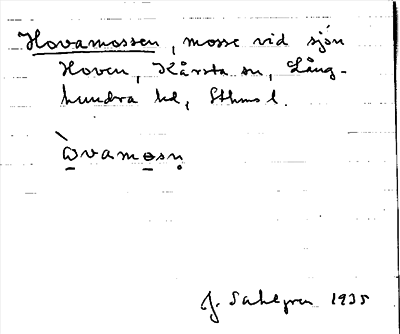 Hovamossen, mosse vid sjön
Hoven, Kårsta sn, Lång-
hundra hd, Sthms l.
ò̱vamo̱sṇ
J. Sahlgren 1935